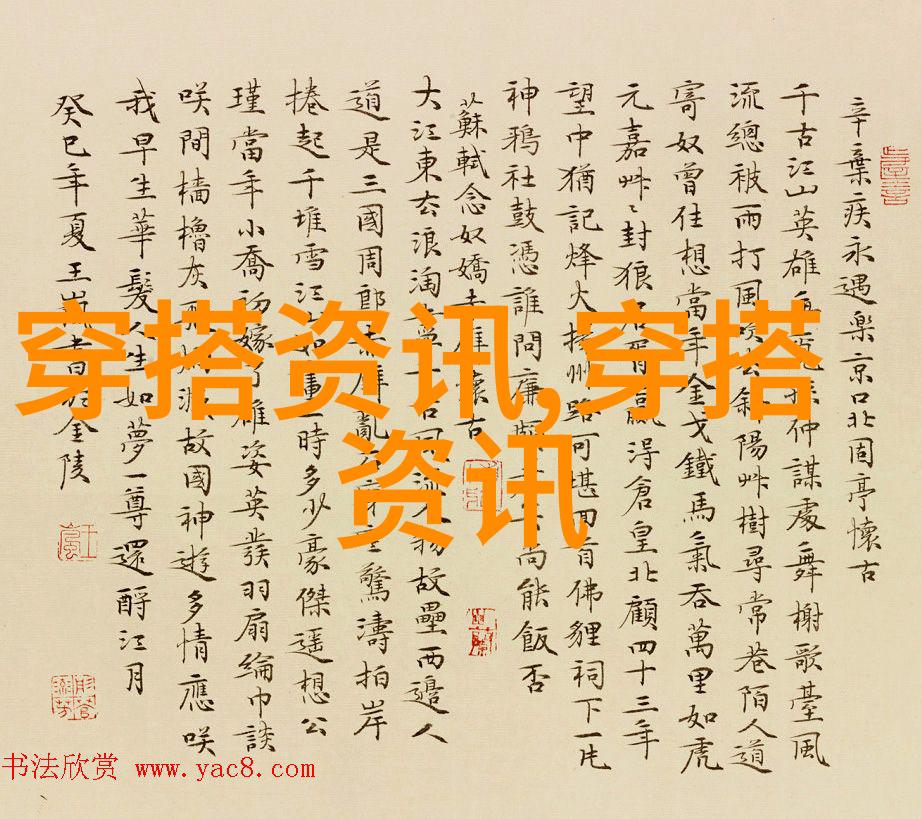 辛棄疾永遇楽京口北固亭懷古
千古江山英雄仲謀處舞榭歌臺風
流總被雨打風吹去斜陽艸樹尋常巷陌人道
寄奴曾住想當年金戈鐵馬氣吞萬里如虎
元嘉艸〻封狼居胥贏得倉皇北顧四十三年
望中猶記烽火揚州路可堪回首佛貍祠下一片
神鴉社鼓憑誰問廉頗尚能飯否
蘇軾念奴嬌赤壁懷古
大江東去浪淘盡人物故壘西邊人
道是三國周郎赤壁亂驚濤拍岸
捲起千堆雪江如畫一時多少豪傑遥想公
瑾當年小喬初嫁了雄姿英發羽扇綸巾談
咲間檣櫓灰飛故國神遊多情應咲
我早生華髮人生如夢一尊還酹江月
癸巳年夏王書金陵
穿搭资讯,穿搭
资讯
书法欣赏 www.yac8.com